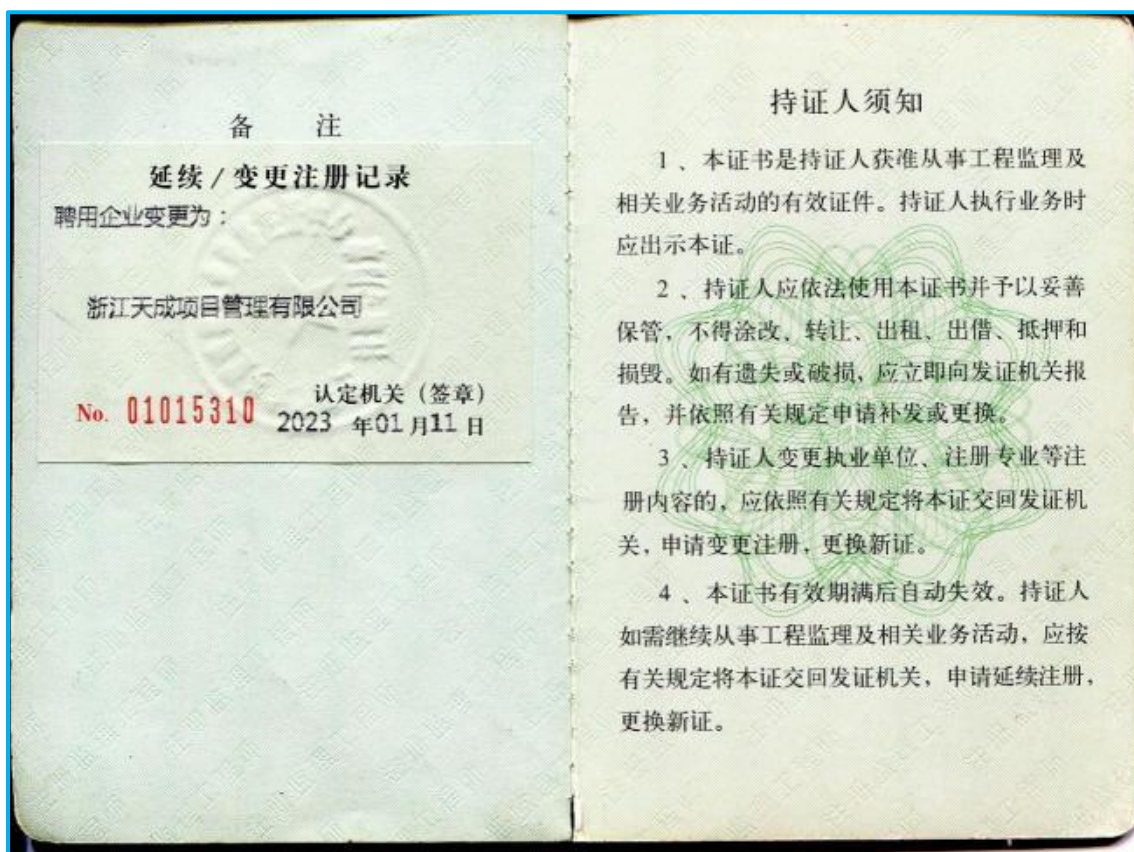 备 注
延续/变更注册记录
聘用企业变更为：
浙江天成项目管理有限公司
认定机关（签章）
No. 01015310
2023 年01月11日
持证人须知
1、本证书是持证人获准从事工程监理及
相关业务活动的有效证件。持证人执行业务时
应出示本证。
2、持证人应依法使用本证书并予以妥善
保管，不得涂改、转让、出租、出借、抵押和
损毁。如有遗失或破损，应立即向发证机关报
告，并依照有关规定申请补发或更换。
3、持证人变更执业单位、注册专业等注
册内容的，应依照有关规定将本证交回发证机
关，申请变更注册，更换新证。
4、本证书有效期满后自动失效。持证人
如需继续从事工程监理及相关业务活动，应按
有关规定将本证交回发证机关，申请延续注册，
更换新证。